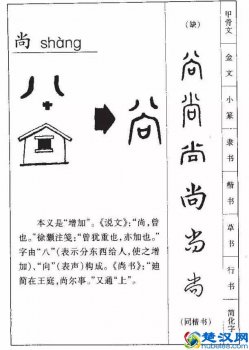 尚 shàng
八
+
本义是“增加”。《说文》：“尚，曾
也。”徐灏注笺：“曾犹重也，亦加也。”
字由“八”（表示分东西给人，使之增
加）、“向”（表声）构成。《尚书》：“迪
简在王庭，尚尔事。”又通“上”。
(缺)
尚
尚
尚
尚
尚
尚
(同楷书)
甲骨文
金文
小篆
隶书
楷书
草书
行书
简化字
楚汉网